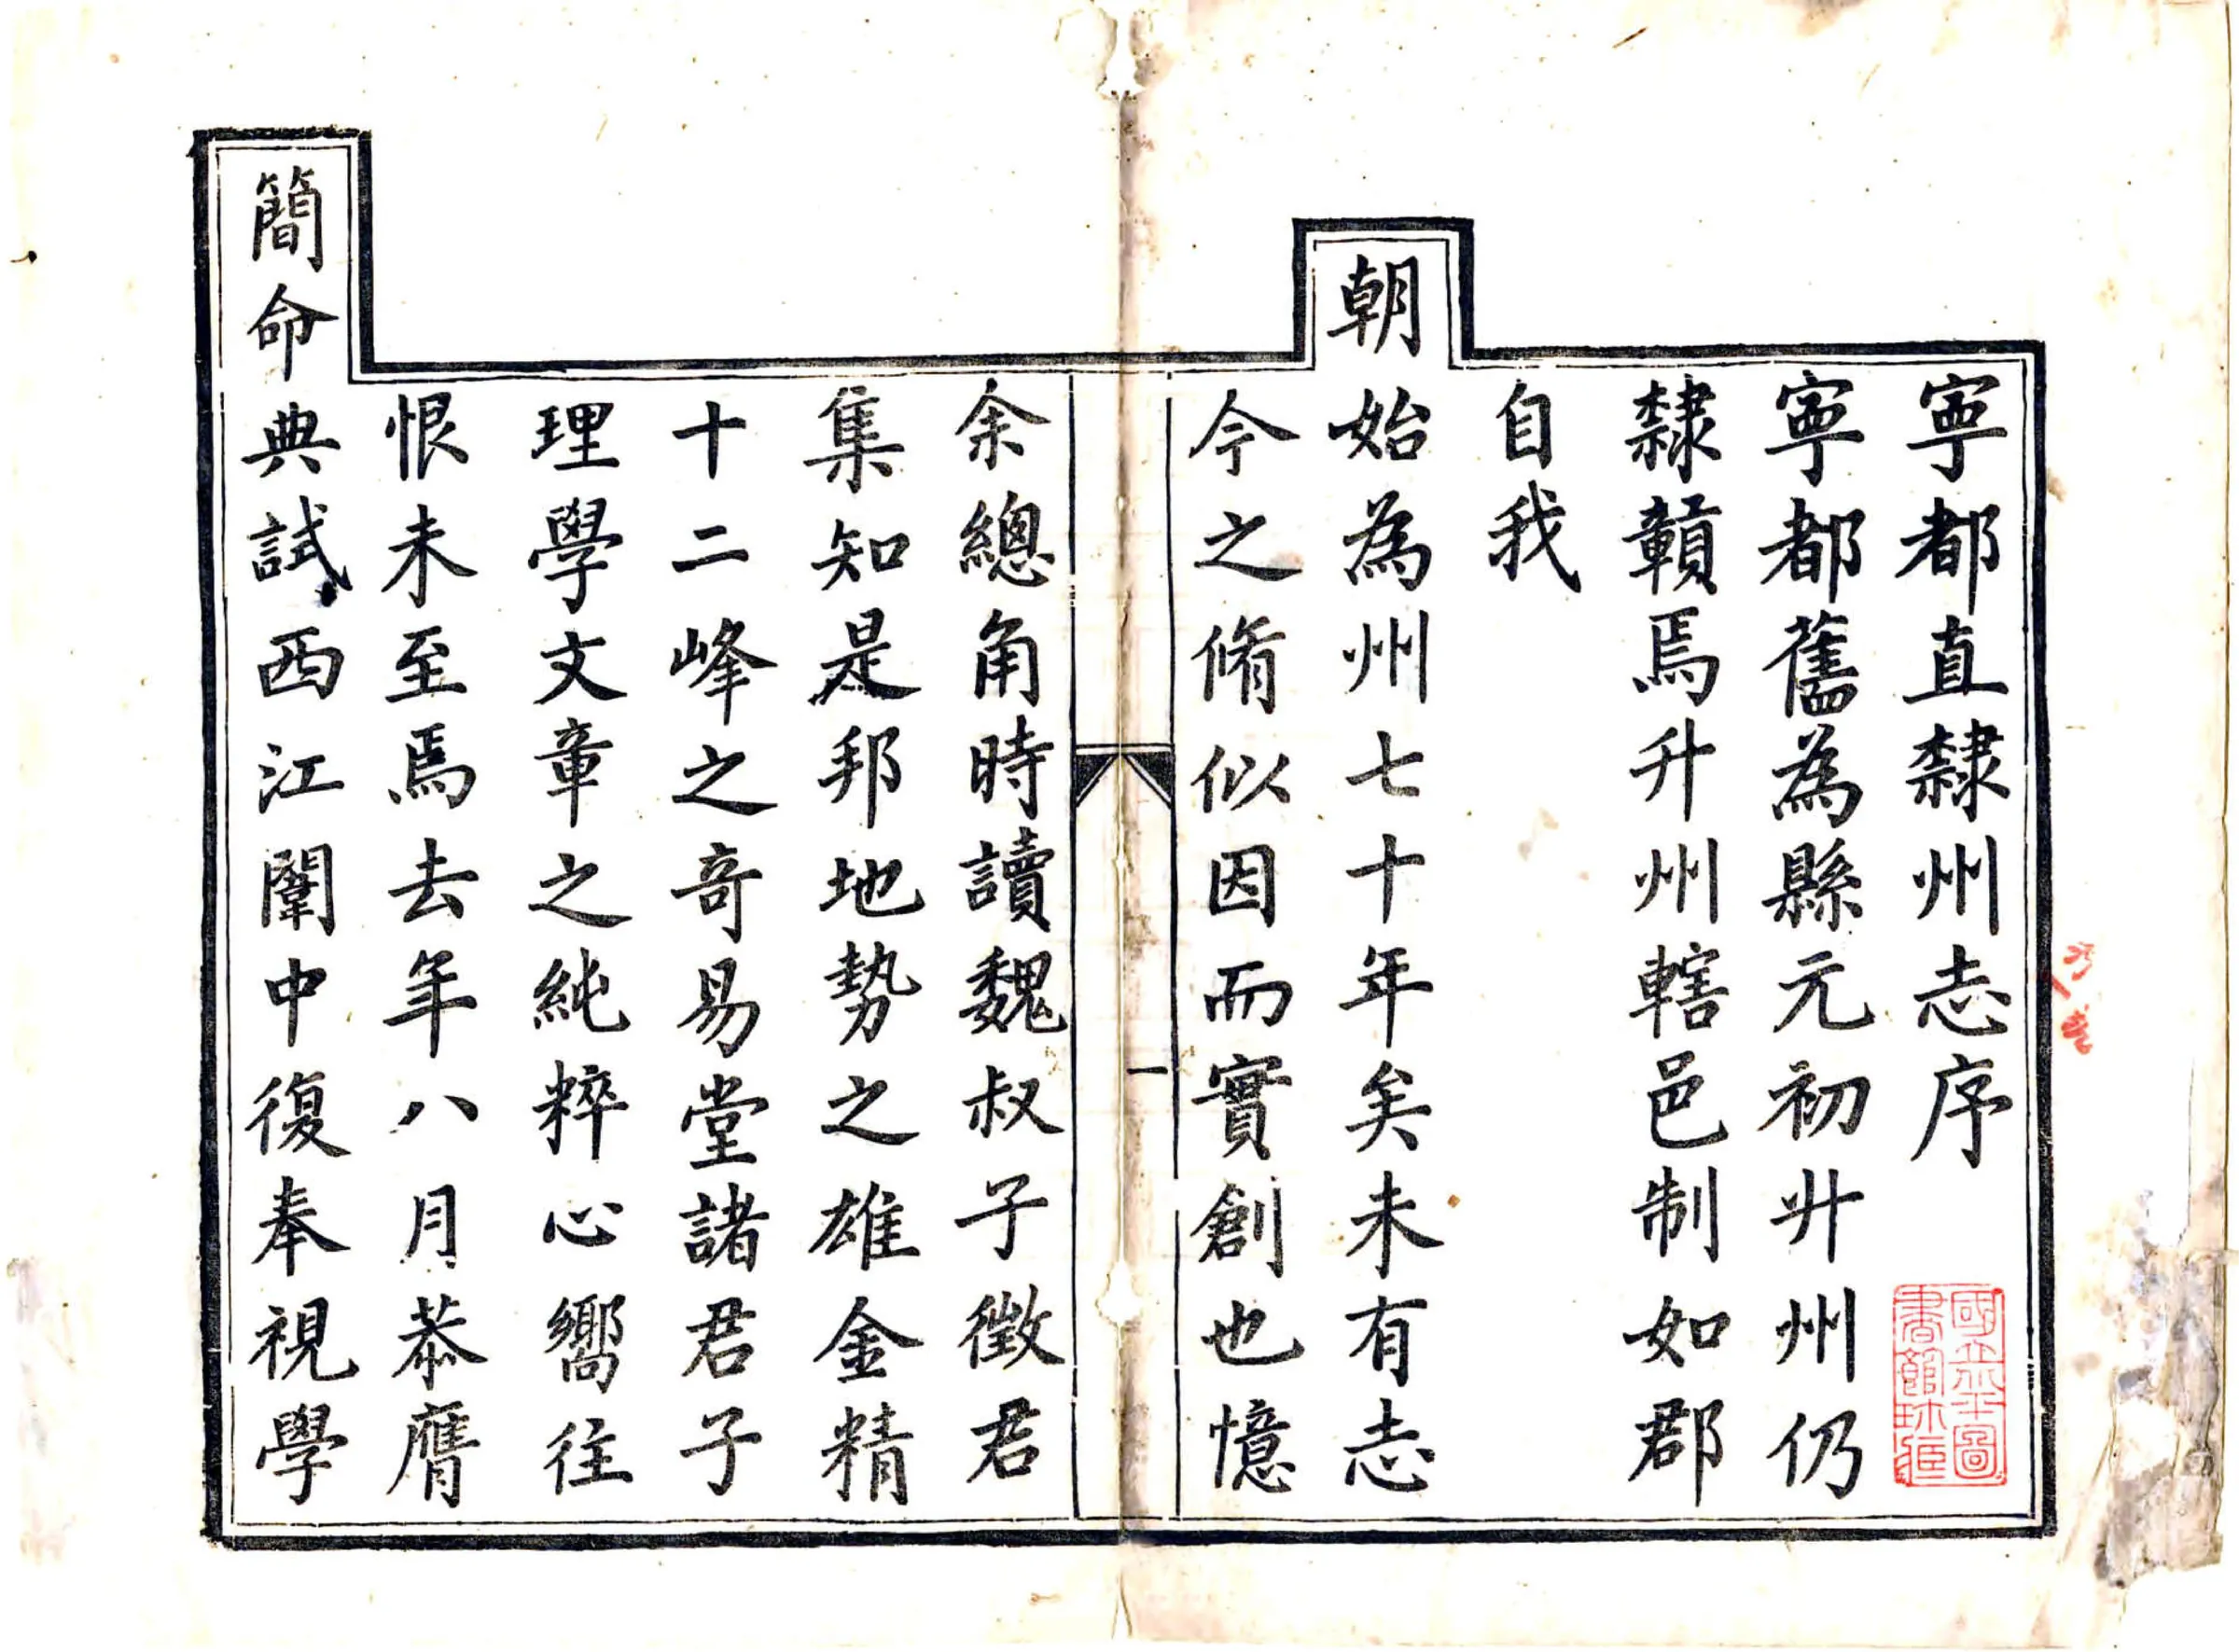 寧都直隸州志序
寧都舊為縣元初升州仍
隸贛焉升州轄邑制如郡
自我
朝始為州七十年矣未有志
今之脩似因而實創也憶
一
余總角時讀魏叔子徵君
集知是邦地勢之雄金精
十二峰之奇易堂諸君子
理學文章之純粹心嚮往
恨未至焉去年八月恭膺
簡命典試西江闈中復奉視學
國立北平圖
書館珍藏